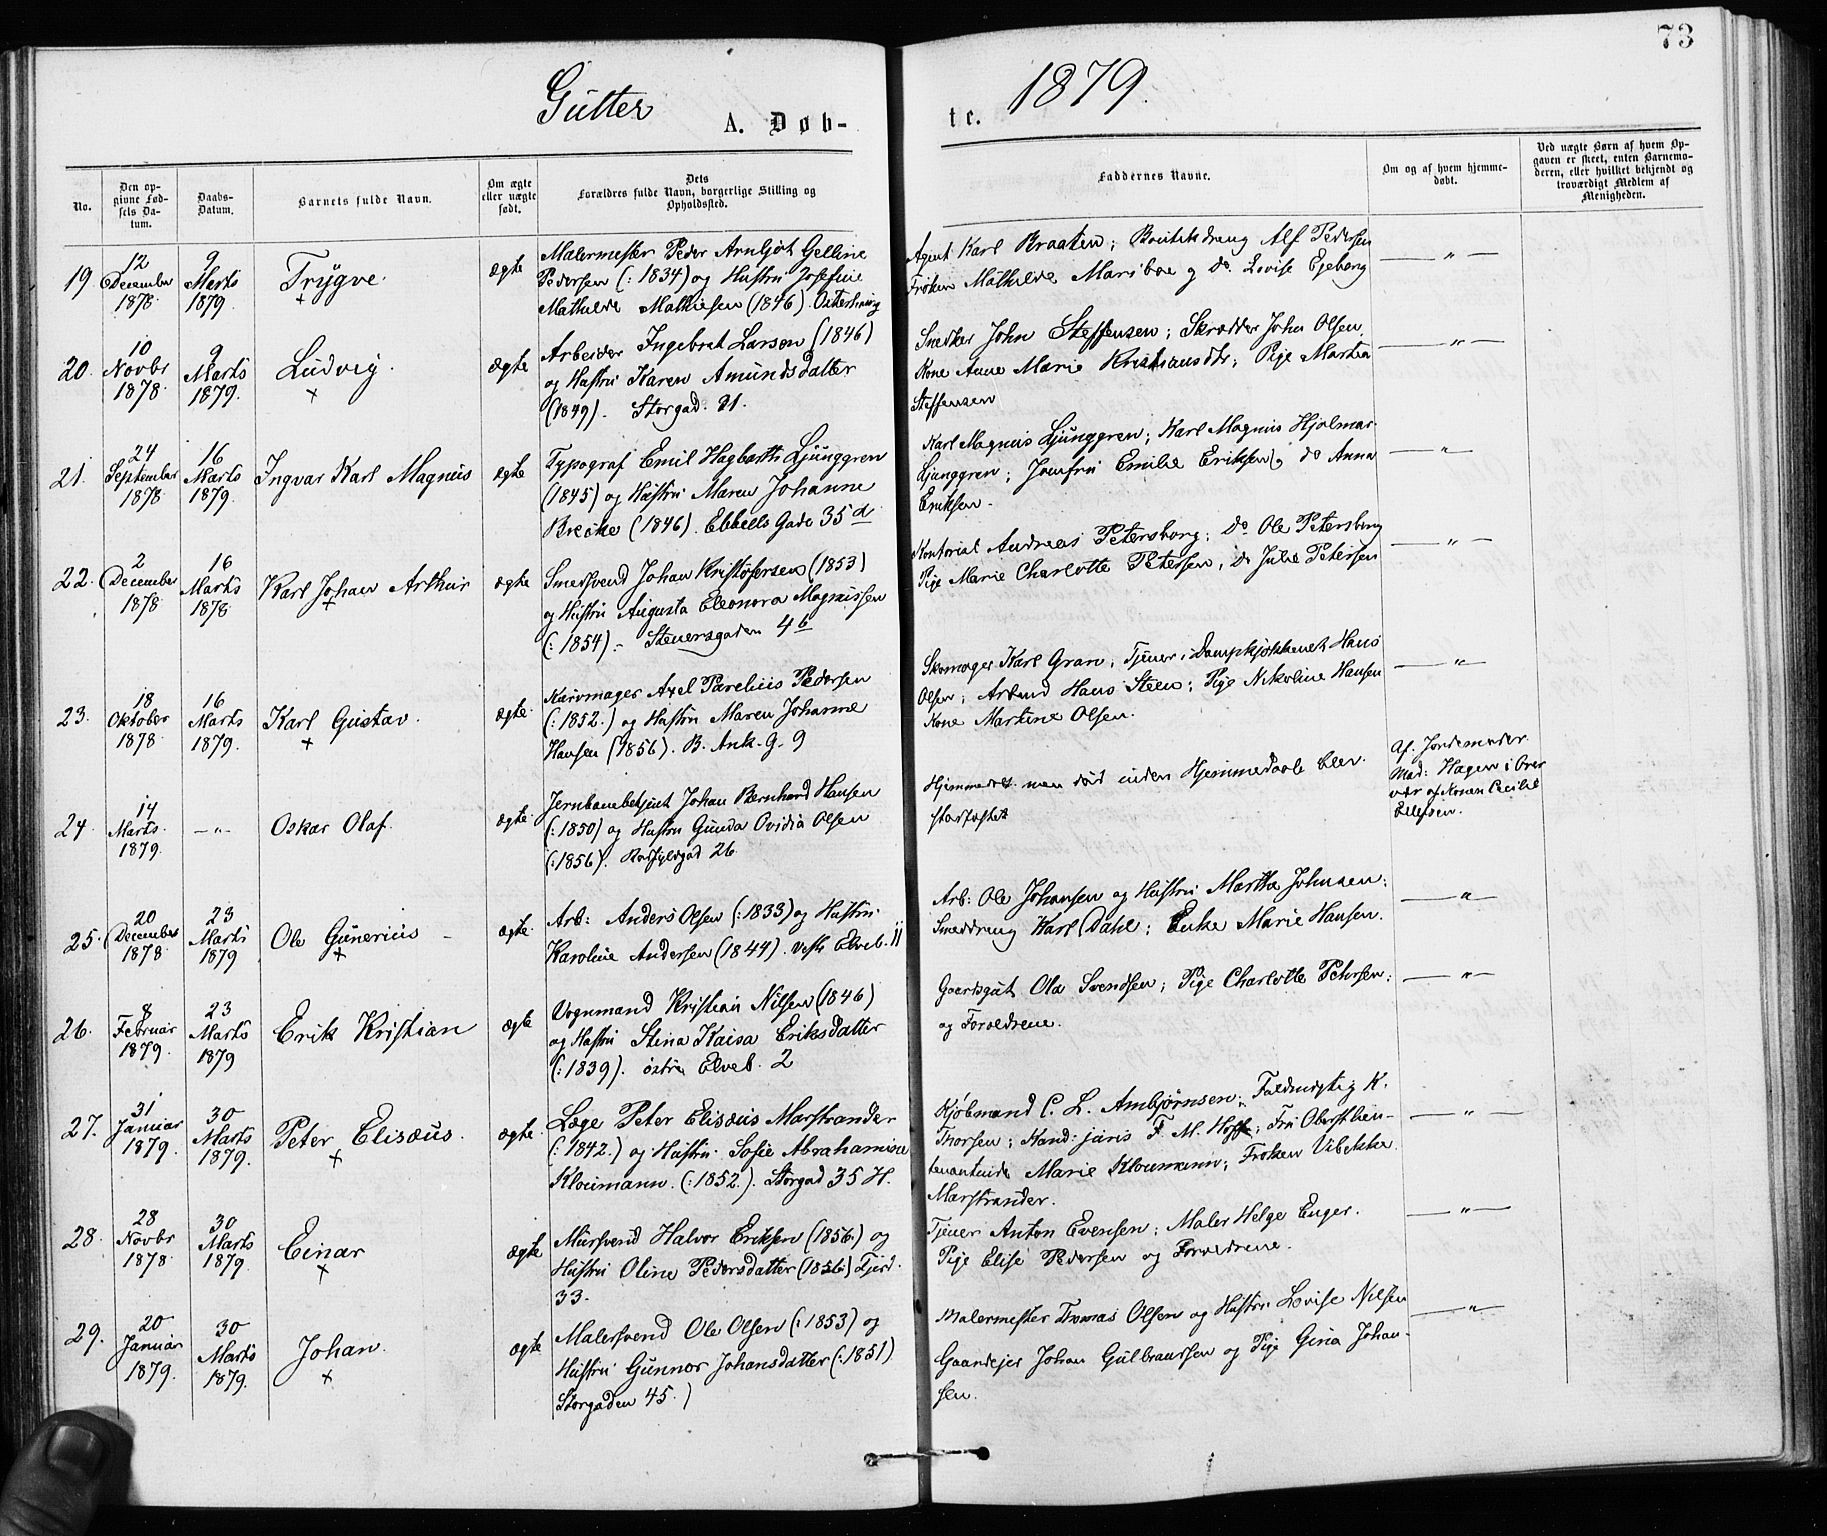 73
Gutter
1879.
A. Døb-
te.
No.
Den op-
givne Fød-
sels Da-
tum.
Daabs-
Datum.
Barnets fulde Navn.
Om ægte
eller uægte
født.
Dets
Forældres fulde Navn, borgerlige Stilling og
Opholdssted.
Faddernes Navne.
Om og af hvem hjemme-
døbt.
Ved uægte Børn af hvem Op-
gaven er skeet, enten Barnemo-
deren, eller hvilket bekjendt og
troværdigt Medlem af
Menigheden.
19
12
December
1878.
9
Marts
1879.
Trygve.
+
ægte
Malermester Peder Arntjøt Gelline
Pedersen (: 1834) og Hustru Josefine
Mathilde Mathiesen (1846).
Agent Karl Braaten; Boutikdreng Alf Pedersen
Frøken Mathilde Mariboe og do. Lovise Egeberg
— „ —
20.
10
Novbr
1878.
9
Marts
1879.
Ludvig.
+
ægte
Arbeider Ingebret Larsen (1846)
og Hustru Karen Amundsdatter
(1849). Storgad. 21.
Snedker John Steffensen; Skrædder John Olsen,
Kone Anne Marie Kristiansdtr; Pige Martea
Steffensen
— „ —
21.
24
September
1878
16
Marts
1879.
Ingvar Karl Magnus
ægte
Typograf Emil Hagbarth Ljunggren
(1845) og Hustru Maren Johanne
Brecke (1846). Ebbells Gade 35 d
Karl Magnus Ljunggren; Karl Magnus Hjalmar
Ljunggren; Jomfru Emilie Eriksen og do Anna
Eriksen.
— „ —
22.
2
December
1878
16
Marts
1878
Karl Johan Arthur
+
ægte
Smedsvend Johan Kristofersen (1853)
og Hustru Augusta Eleonora Magnussen
(: 1854). - Stenersgaden 4 b
Kontorist Andreas Petersborg; do Ole Petersborg
Pige Marie Charlotte Petersen, do Julie Petersen
— „ —
23.
18
Oktober
1878.
16
Marts
1879.
Karl Gustav.
+
ægte.
Kurvmager Axel Parelius Pedersen
(: 1852.) og Hustru Maren Johanne
Hansen (1856). B. Ank. G. 9
Skomager Karl Gran; Tjener i Dampkjøkkenet Hans
Olsen; Hans Steen; Pige Nikoline Hansen
Kone Martine Olsen.
— „ —
24.
14
Marts.
1879.
— „ —
Oskar Olaf.
ægte.
Jernbanebetjent Johan Bernhard Hansen
(: 1850) og Hustru Gunda Ovidia Olsen
(: 1856). 26.
Hjemmedøbt men død inden Hjemmedaab blev
stadfæstet
Af. Jordemoder
Mad: Hagen i Over
vær af Konen Cecilie
Ellefsen.
25.
20
December
1878.
23
Marts
1879
Ole Gunerius
+
ægte.
Arb: Anders Olsen (: 1833) og Hustru
Karoline Andersen (1844). Vestr Elveb. 11
Arb: Ole Johansen og Hustru Marthe Johnsen;
Smeddreng Karl Dahl; Enke Marie Hansen.
— „ —
26.
8
Februar
1879.
23
Marts
1879
Erik Kristian
ægte
Vognmand Kristian Nilsen (1846)
og Hustru Stina Kaisa Eriksdatter
(: 1839). østre Elveb. 2
Gaardsgut Ola Svendsen; Pige Charlotte Petersen;
og Forældrene.
— „ —
27.
31
Januar
1879.
30
Marts
1879.
Peter Elisæus.
+
ægte.
Læge Peter Elisæus Marstrander
(: 1842.) og Hustru Sofie Abrahamine
Kloumann. (: 1852.). Storgad 35 H.
Kjøbmand C. L. Ambjørnsen; Fuldmægtig K.
Thorsen; Kand: juris F. M. Hoff; Fru Oberstlieu-
tenantinde Marie Kloumann; Frøken Vibekke
Marstrander.
— „ —
28.
28
Novbr
1878.
30
Marts
1879.
Einar
+
ægte
Mursvend Halvor Eriksen (1856.) og
Hustru Oline Pedersdatter (1856.) Fjerd.
33.
Tjener Anton Evensen; Maler Helge Enger.
Pige Elise Pedersen og Forældrene.
— „ —
29.
20
Januar
1879.
30
Marts
1879.
Johan.
+
ægte
Malersvend Ole Olsen (: 1853) og
Hustru Gunnor Johansdatter (: 1851)
Storgaden 45.)
Malermester Tomas Olsen og Hustru Lovise Nilsen
Gaardejer Johan Gulbrandsen og Pige Gina Johan-
sen.
— „ —